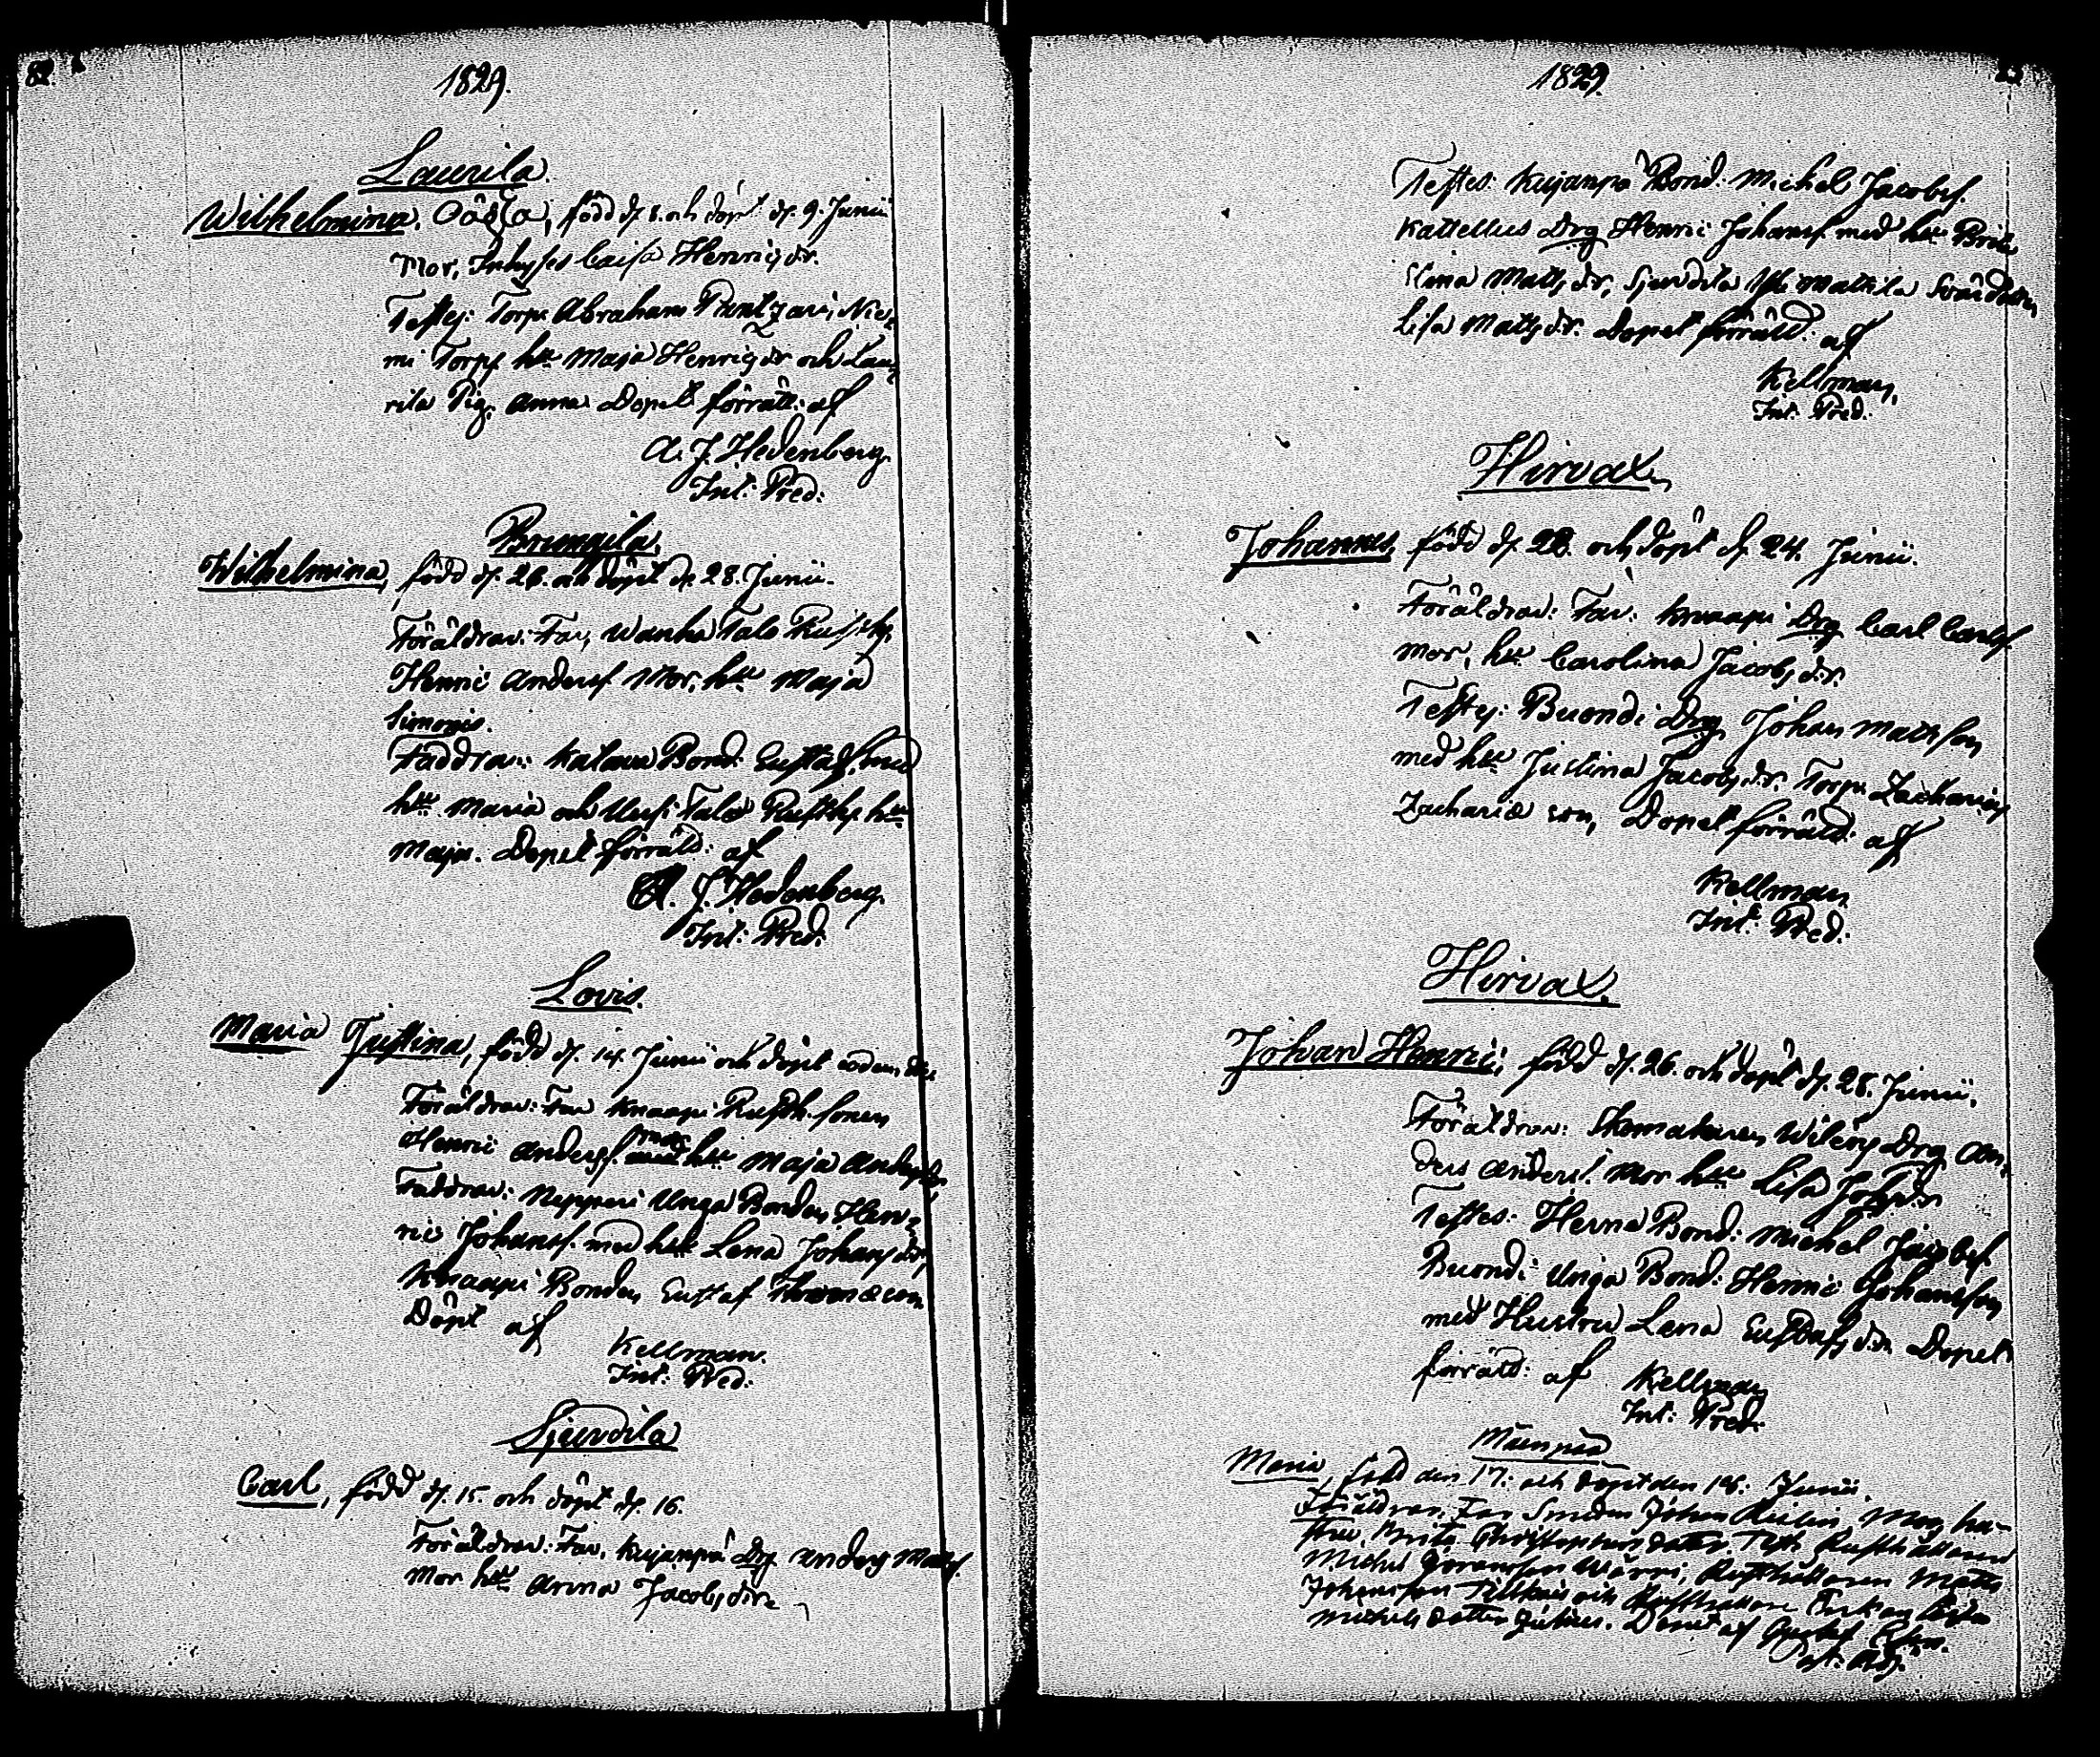 82
1829.
Laurila.
Wilhelmina, Oäkta, född d. 8. och döpt d. 9. Junii
Mor, Inhyses Caisa Henrigsdr.
Testes: Torp. Abraham Prentzari, Nie-
mi Torp. hu Maja Henrigsdr och Lau-
rila Pig. Anna. Dopet förrätt: af
A. J. Hedenberg.
Int: Pred:
Wilhelmina, född d. 26. och döpt d. 28. Junii.
Föräldrar: Far, Wanha Talo Rusth.
Henric Anderss. Mor, hu Maja
Simonis.
Faddrar: Bond: Gustaf, med
hu Maria och Uusi Talo Rusth. hu
Maja. Dopet förrätt: af
A. J. Hedenberg.
Int: Pred:
Lovis.
Maria Justina, född d. 14. Junii och döpt
Föräldrar: Far Knaapi Rusth. sonen
Henric Anderss. mor hu Maja Andersdr
Faddrar: Nepperi Unga Bonden Hen-
ric Johanss. med hu Lena Johansdr,
Knaapi Bonden Gustaf Thomæson
Döpt af
Kellman.
Int: Pred:
Sjundila
Carl, född d. 15. och döpt d. 16.
Föräldrar: Far, Kujanpä Drg Anders Matss.
Mor hu Anna Jacobsdr.
1829.
Testes: Kujanpä Bond: Michel Jacobss.
Kattelus Drg Henric Johanss. med hu Brita
Lina Matsdr, Sjundila Mattila
Lisa Matsdr. Dopet förrätt: af
Kellman,
Int: Pred:
Hirvax,
Johannes, född d. och döpt d. 24. Junii.
Föräldrar: Far: Knaapi Drg Carl Carlss.
Mor, hu Carolina Jacobsdr.
Testes: Buondi Drg Johan Mathsson
med hu Justina Jacobsdr. Torp. Zacharias
Zachariæ son, Dopet förrätt: af
Kellman
Int: Pred:
Hirvax.
Johan Henric, född d. 26. och döpt d. 28. Junii.
Föräldrar: Skomakaren Drg An-
ders Anderss. Mor hu Lisa Johsdr
Testes: Herna Bond: Michel Jacobss.
Buondi Unga Bond: Henric Johansson
med Hustru Lena Gustafsdr. Dopet
förrätt: af Kellman
Int: Pred:
Maria, född den 17: och döpt den 18: Junii.
Föräldrar. Far Smeden Johan Mor hu-
stru Brita Christophersdotter. Test: Rusthållaren
Michel Göransson Rusthållaren Matts
Johansson och Rusthållare
Michelsdotter Döpt af Gustaf